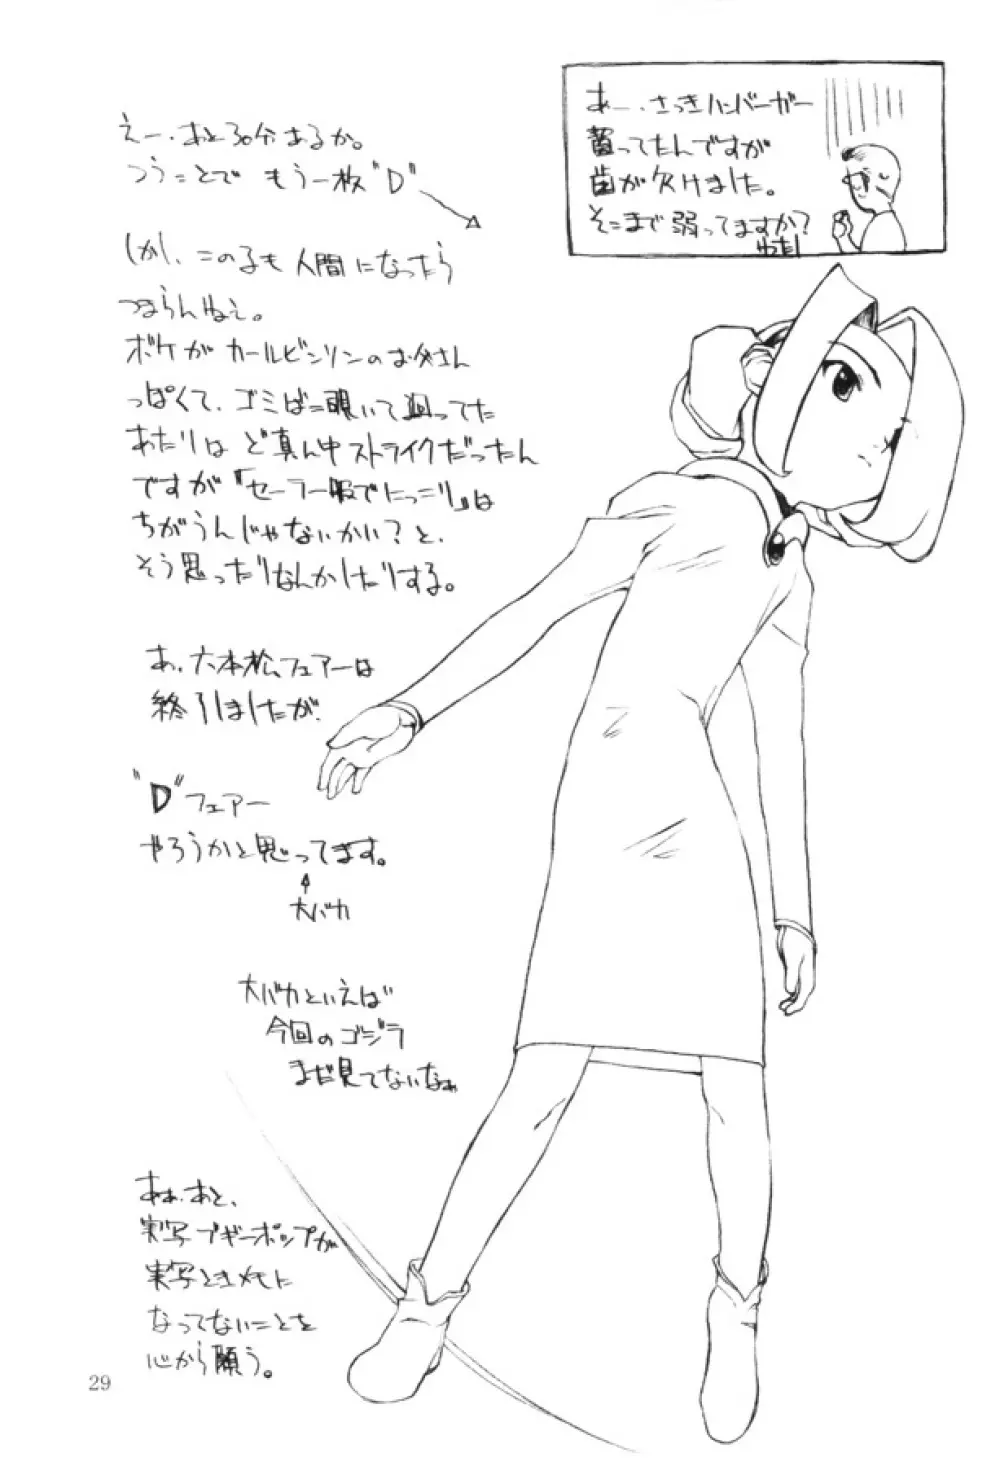 えー、あと30分あるか。
つうことで もう一枚"D"
しかし、この子も人間になったら
つまらんねぇ。
ボケがカールビンソンのお父さん
っぽくて、ゴミばこ覗いて廻ってた
あたりはど真ん中ストライクだったん
ですが「セーラー服でにっこり」は
ちがうんじゃないかい?と、
そう思ったりなんかしたりする。
あ、六本松フェアーは
終了しましたが、
"D"フェアー
やろうかと思ってます。
↑
大バカ
大バカといえば
今回のゴジラ
まだ見てないなぁ
あぁ、あと、
実写ブギーポップが
実写ときメモに
なってないことを
心から願う。
29
あー、さっきハンバーガー
食ってたんですが
歯が欠けました。
そこまで弱ってますか?
わたし